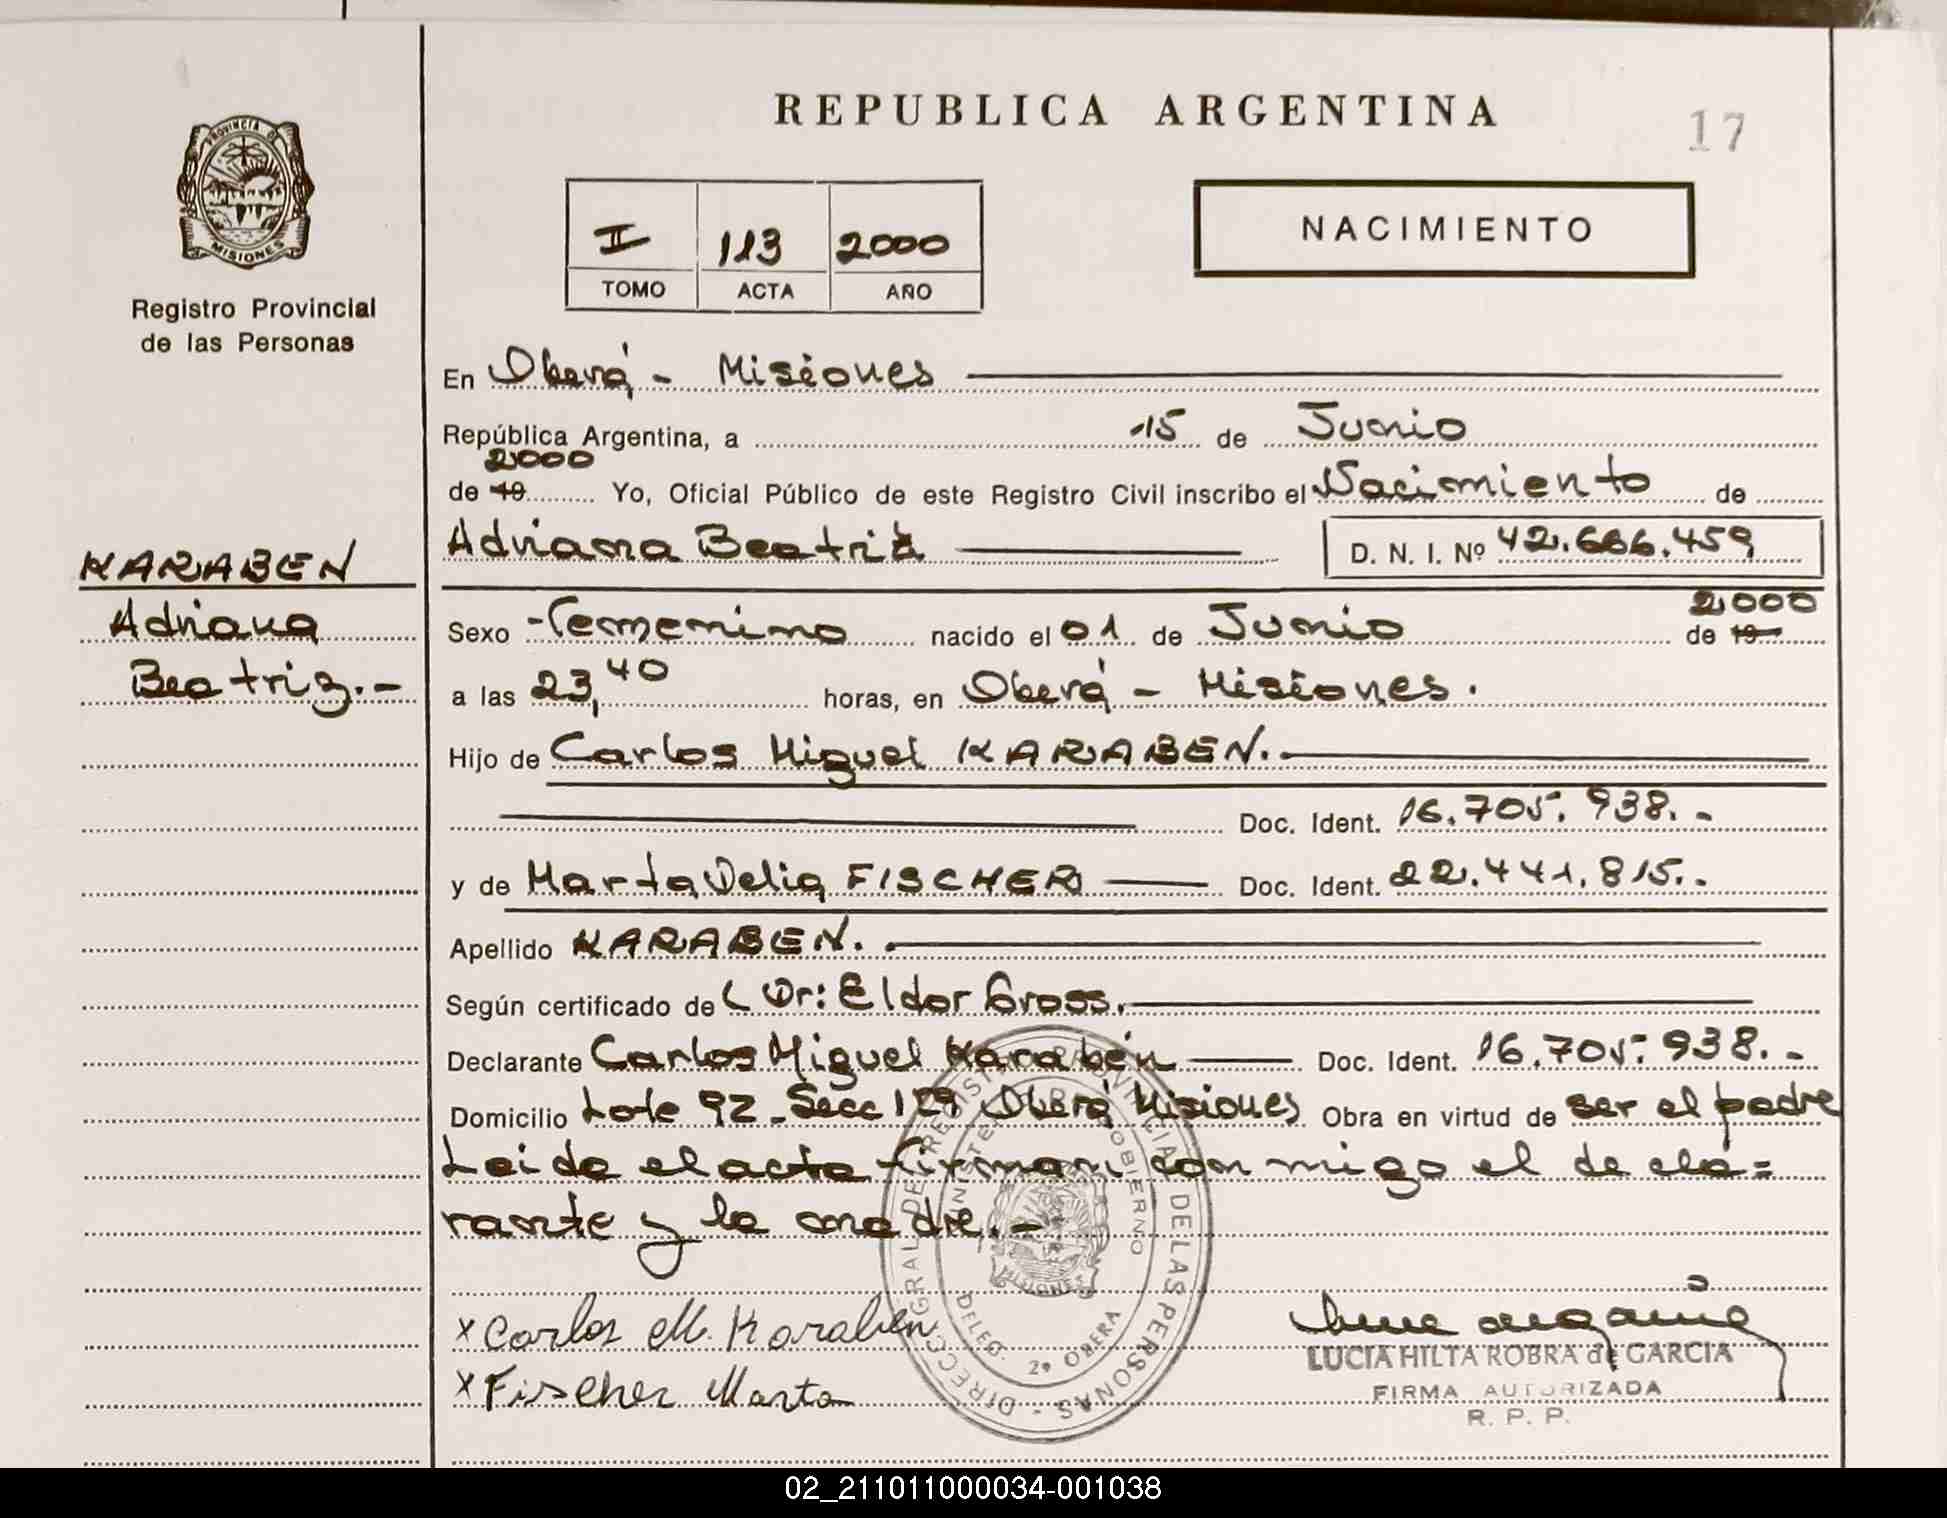 REPUBLICA ARGENTINA
17
PROVINCIA DE
MISIONES
Registro Provincial
de las Personas
II 113 2000
TOMO ACTA AÑO
NACIMIENTO
En Oberá - Misiones
República Argentina, a 15 de Junio
2000
de 19 Yo, Oficial Público de este Registro Civil inscribo el Nacimiento de
Adriana Beatriz D. N. I. Nº 42.666.459
KARABEN
Adriana
Beatriz.-
2000
Sexo Femenino nacido el 01 de Junio de 19
a las 23,40 horas, en Oberá - Misiones.
Hijo de Carlos Miguel KARABEN.
Doc. Ident. 16.705.938.-
y de Marta Delia FISCHER Doc. Ident. 22.441.815.-
Apellido KARABEN.
Según certificado de Dr: Eldor Gross.
Declarante Carlos Miguel Karabén Doc. Ident. 16.705.938.-
Domicilio Lote 92 - Secc 1ª Oberá Misiones Obra en virtud de ser el padre
Leida el acta firman conmigo el decla=
rante y la madre.-
x Carlos M. Karaben
x Fischer Marta
DIRECC. GRAL. DE REGISTRO PROVINCIAL DE LAS PERSONAS -
MINISTERIO GOBIERNO
MISIONES
DELEG. 2ª OBERA
LUCIA HILTA ROBRA de GARCIA
FIRMA AUTORIZADA
R. P. P.
02_211011000034-001038